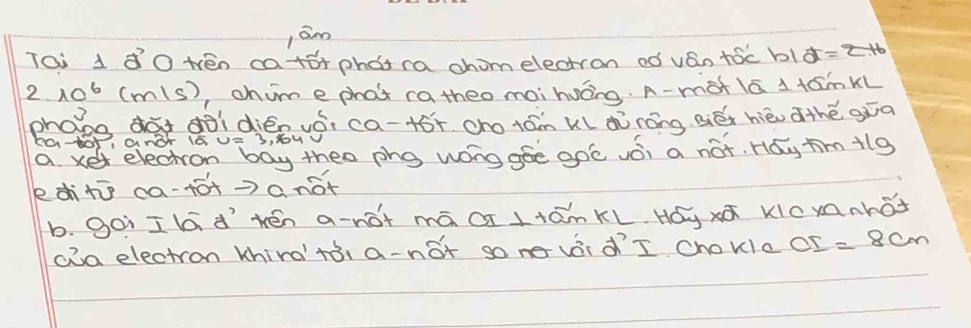 , âm
Tại 1 đ' O trên ca-tốt phát ra chùm electron có vân tốc bđ =
2.10⁶ (m/s), chùm e phát ra theo mọi hướng. A-nốt là 1 tấm KL
phẳng đặt đối diện với ca-tốt. Cho tấm KL đủ rộng. Biết hiệu đthế giữa
ca-tốt, anốt là U = 3,64V
a. xét electron bay theo phg vuông góc góc với a nốt. Hãy tìm t/g
e đi từ ca-tốt → a nốt
b. gọi I là đ' trên a-nốt mà OI ⊥ tấm KL. Hãy xđ k/c xa nhất
của electron khi rơi tới a-nốt so với đ' I. Cho k/c OI = 8cm